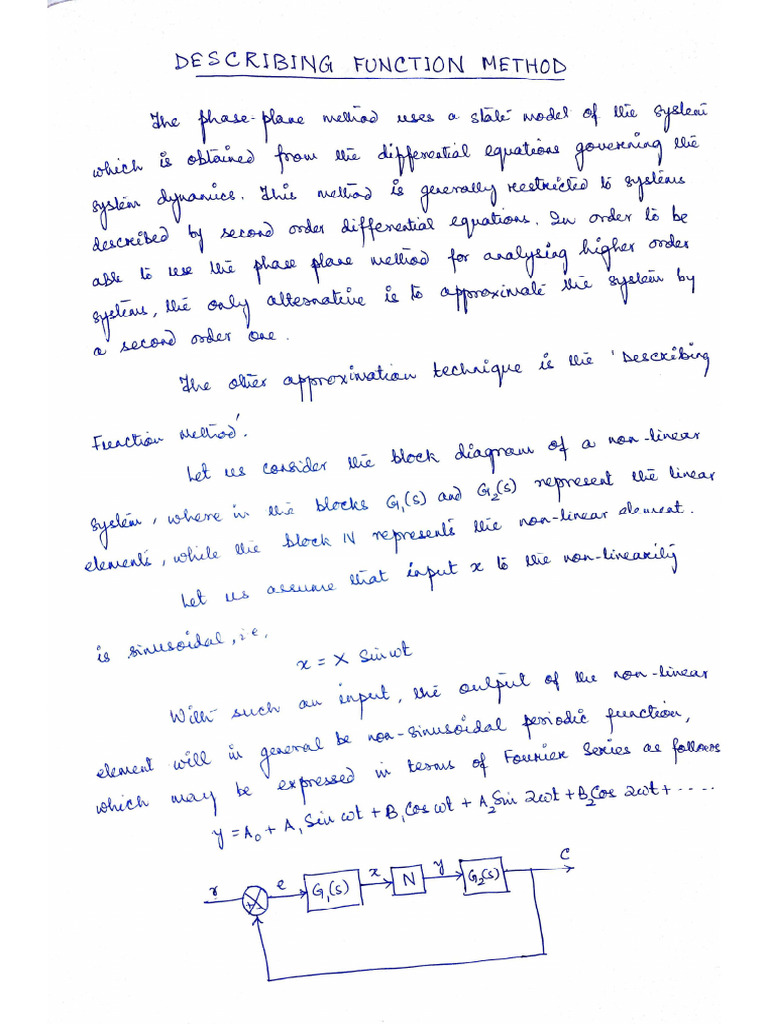 DESCRIBING FUNCTION METHOD
The phase-plane method uses a state model of the system
which is obtained from the differential equations governing the
system dynamics. This method is generally restricted to systems
described by second order differential equations. In order to be
able to use the phase plane method for analysing higher order
systems, the only alternative is to approximate the system by
a second order one.
The other approximation technique is the 'Describing
Function Method'.
Let us consider the block diagram of a non-linear
system, where in the blocks G₁(s) and G₂(s) represent the linear
elements, while the block N represents the non-linear element.
Let us assume that input x to the non-linearity
is sinusoidal, i.e,
x = X Sin ωt
With such an input, the output of the non-linear
element will in general be non-sinusoidal periodic function,
which may be expressed in terms of Fourier Series as follows
y = A₀ + A₁ Sin ωt + B₁ Cos ωt + A₂ Sin 2ωt + B₂ Cos 2ωt + .....
r e G₁(s) x N y G₂(s) C